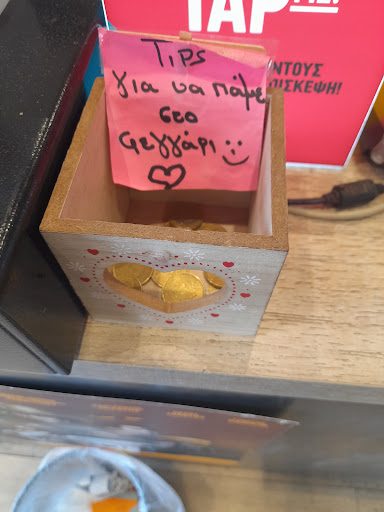 TAP
ΝΤΟΥΣ
ΙΣΚΕΨΗ!
Tips
για να πάμε
στο
Φεγγάρι